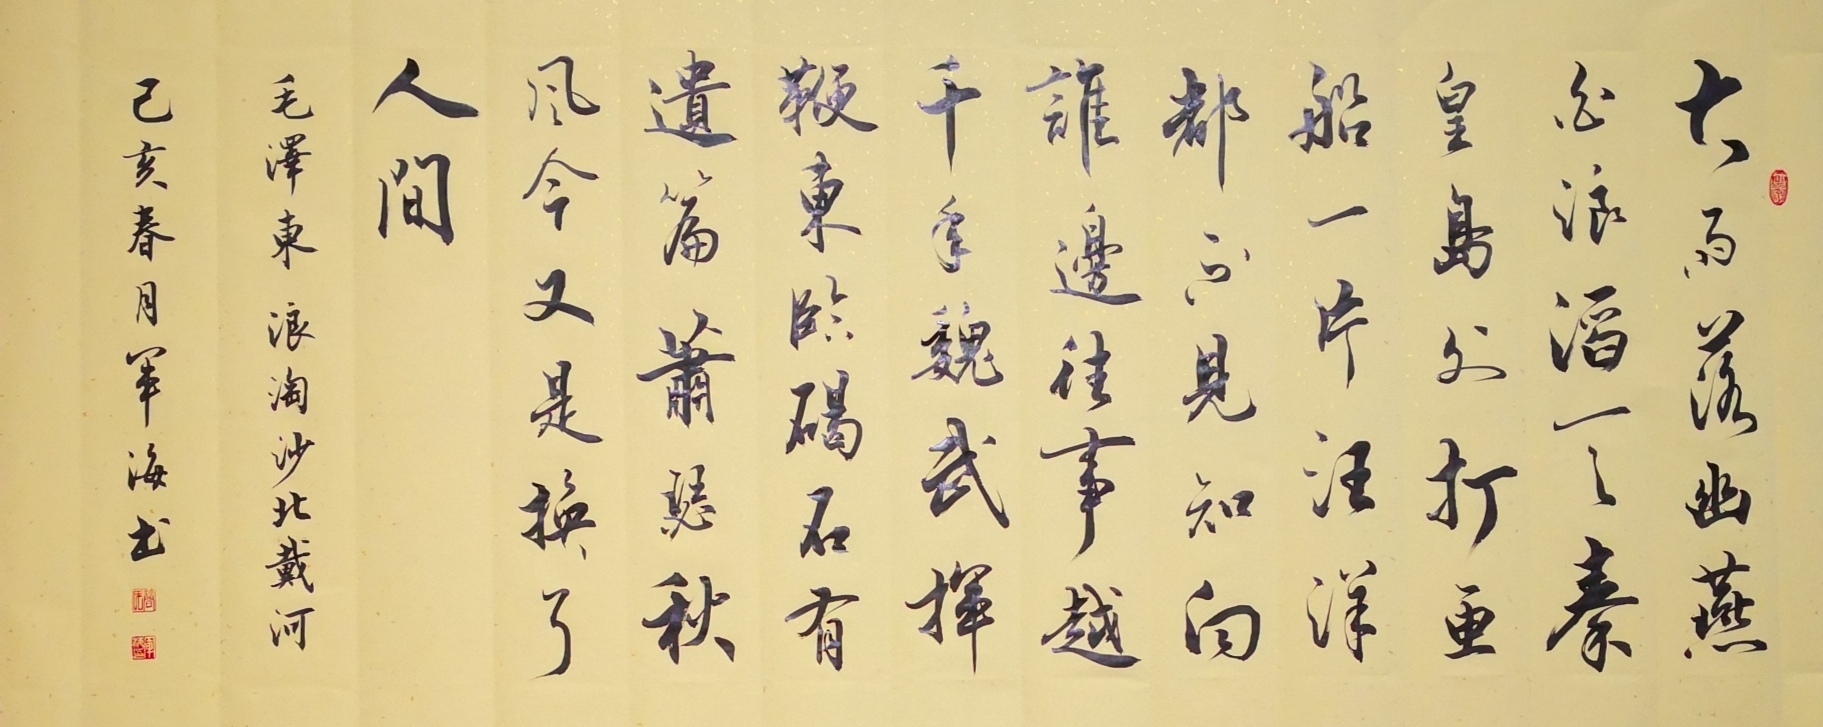 大雨落幽燕
白浪滔天秦
皇島外打魚
船一片汪洋
都不見知向
誰邊往事越
千年魏武揮
鞭東臨碣石有
遺篇蕭瑟秋
風今又是換了
人間
毛澤東浪淘沙北戴河
己亥春月軍海书